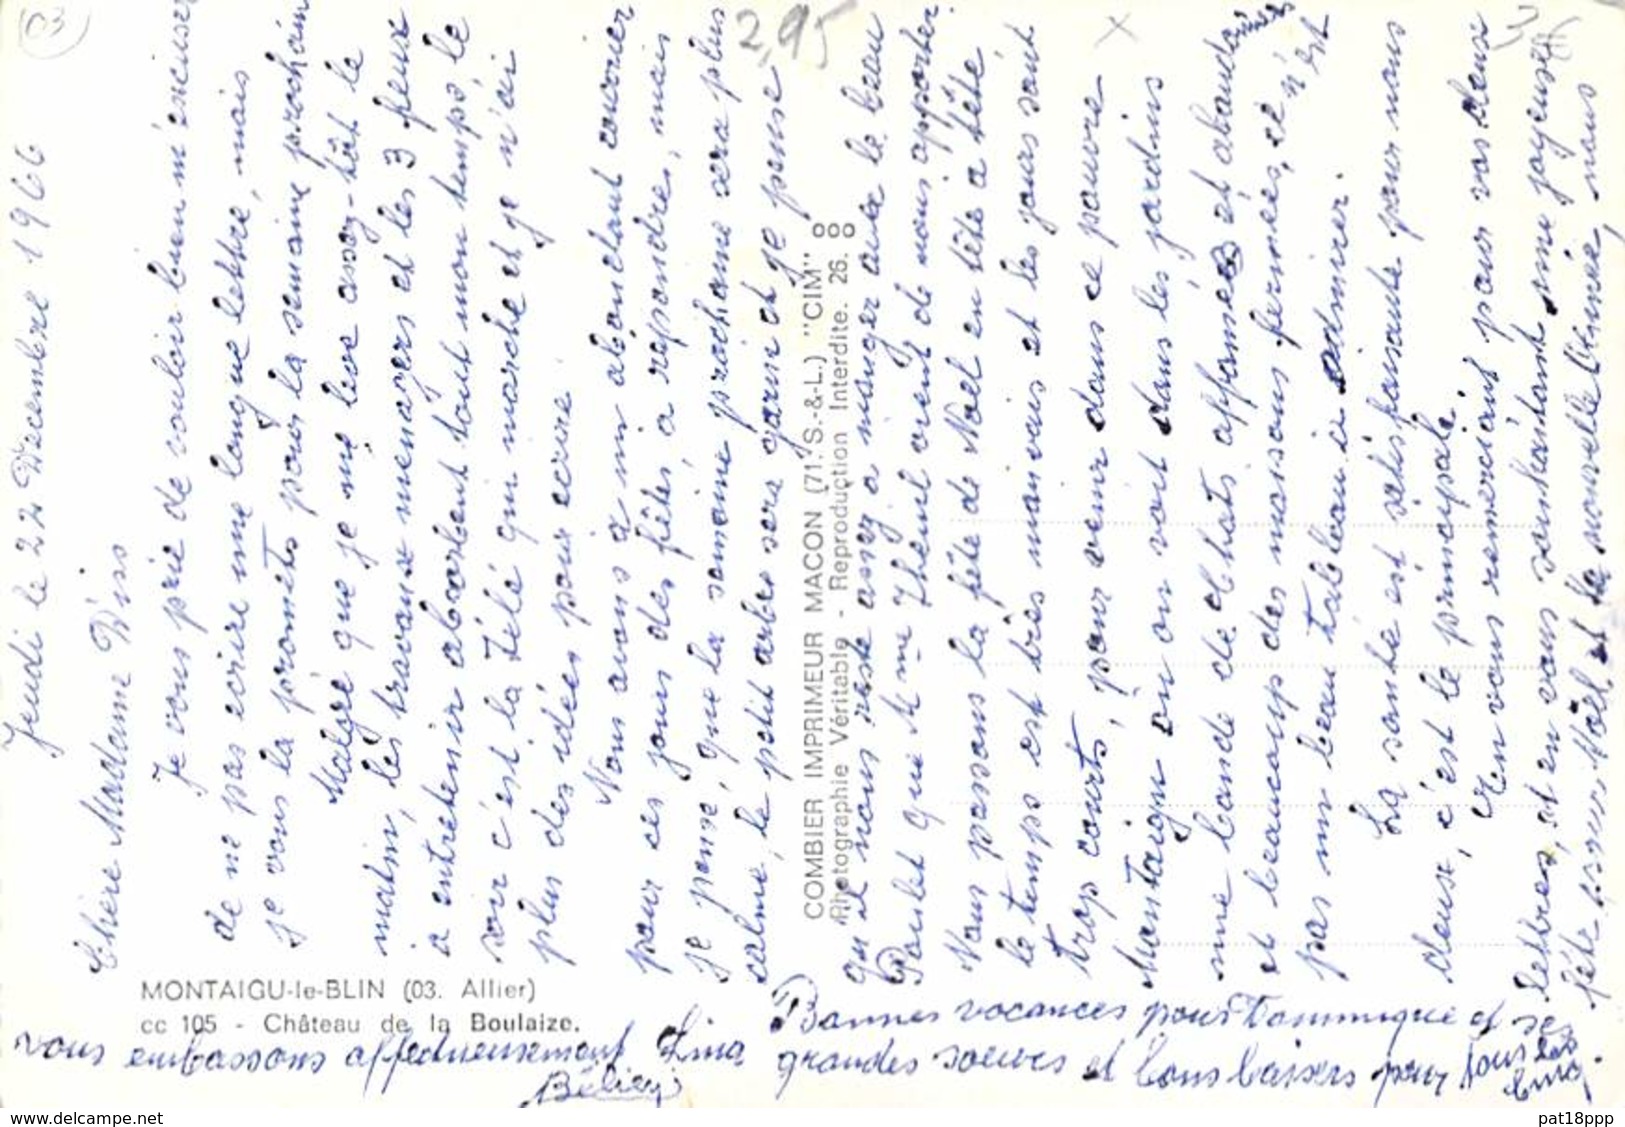 Jeudi le 22 Decembre 1966
Chère Madame Diss
Je vous prie de vouloir bien m'excuser
de ne pas ecrire une longue lettre, mais
je vous la promets pour la semaine prochaine
Malgré que je me leve assez-tôt le
matin, les travaux menagers et les 3 feux
a entretenir absorbent tout mon temps, le
soir c'est la Télé qui marche et je n'ai
plus des idées pour ecrire.
Nous avons a un abondant courrier
pour ces jours des fêtes a repondre, mais
je pense, que la semaine prochaine sera plus
calme, le petit arbre sera garni et je pense
qu'il nous reste assez a manger avec le beau
Poulet que Mme vient de nous apporter.
Nous passons la fête de Noël en tête a tête,
le temps est très mauvais et les jours sont
trop courts, pour venir dans ce pauvre
Montaigu on on voit dans les jardins
une bande de Chats affamés et abandonnés
et beaucoup des maisons fermées, ce n'est
pas un beau tableau a admirer.
La santé est satisfaisante pour nous
deux, c'est le principale.
En vous remerciant pour vos deux
lettres, et en vous souhaitant une joyeuse
fête pour Noël et la nouvelle Année, nous
vous embassons affectueusement Lina
Bonnes vacances pour Dominique et ses
grandes soeurs et bons baisers pour tous les
cinq.
MONTAIGU-le-BLIN (03. Allier)
cc 105 - Château de la Boulaize.
COMBIER IMPRIMEUR MACON (71. S.-&-L.) "CIM"
Photographie Véritable - Reproduction Interdite. 26.
03
2,95
www.delcampe.net
pat18ppp